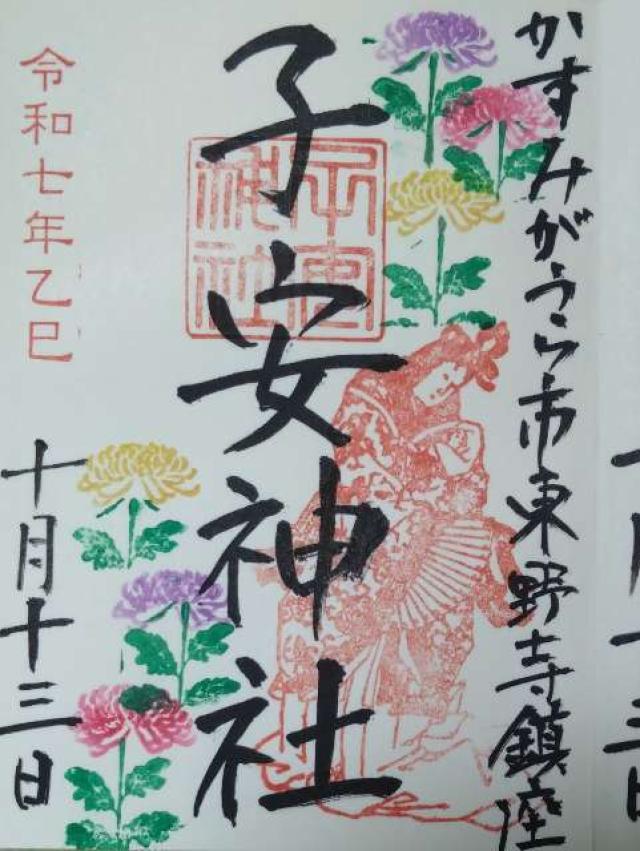 かすみがうら市東野寺鎮座
子安神社
子安神社
令和七年乙巳
十月十三日